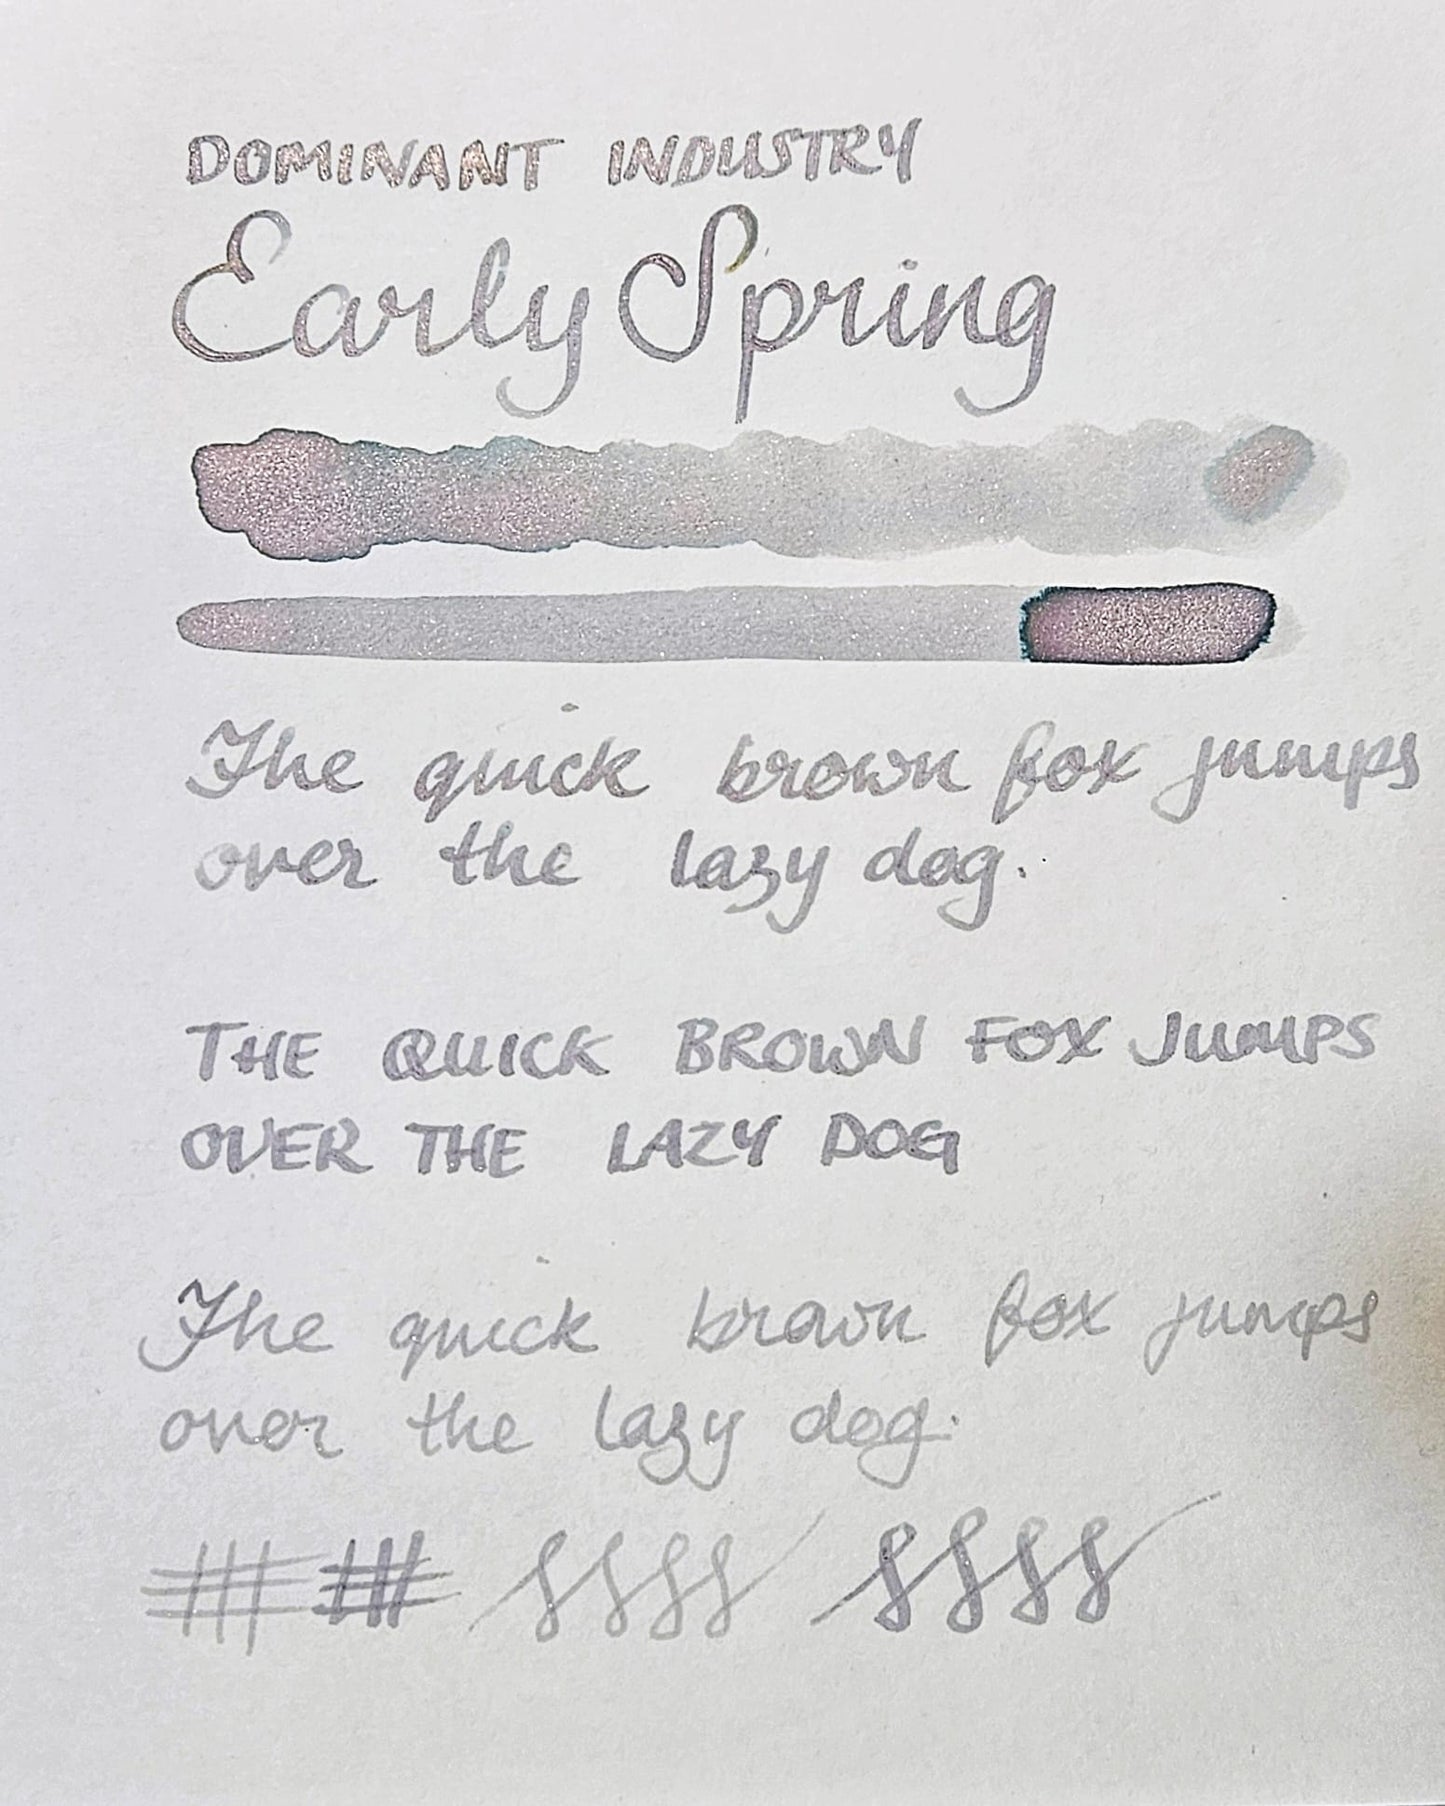 DOMINANT INDUSTRY
Early Spring
The quick brown fox jumps
over the lazy dog.
THE QUICK BROWN FOX JUMPS
OVER THE LAZY DOG
The quick brown fox jumps
over the lazy dog.